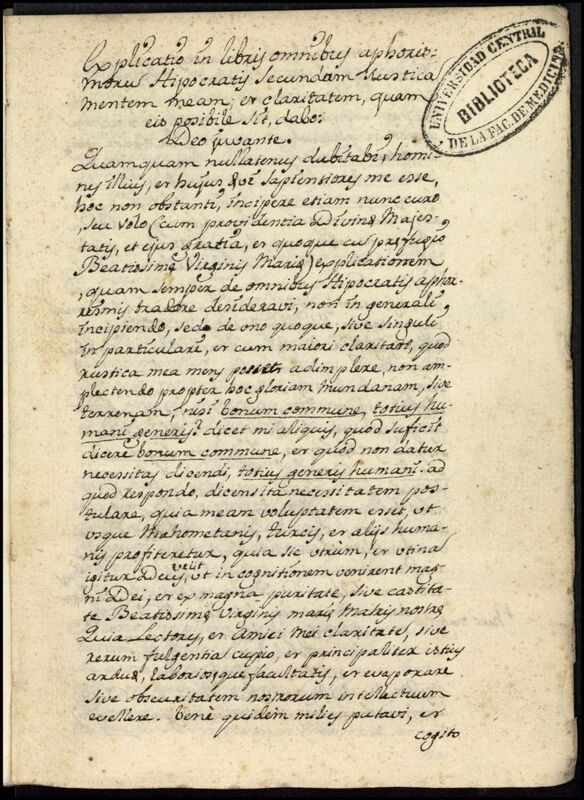 Explicatio in libris omnibus aphoris-
morus Hipocratis secundam rustica
mentem meam; et claritatem, quam
eis posibile sit, dabo:
Deo juvante.
UNIVERSIDAD CENTRAL
BIBLIOTECA
DE LA FAC. DE MEDICINA
Quamquam nullatenus dubitabi; homi-
nis illius, et hujus sapientiores me esse,
hoc non obstanti, incipere etiam nunc curo
, seu volo (cum providentia Divinę Majes-
tatis, et ejus gratia, et quoque
Beatissimę Virginis Marię) explicationem
, quam semper de omnibus Hipocratis aphor-
resmis tradere desideravi, non in generali
incipiendo, sed de uno quoque, sive singuli
in particulare, et cum maiori claritate, quod
rustica mea mens adimplere, non am-
plectendo propter hoc gloriam mundanam, sive
terrenam, nisi bonum commune, totius hu-
mani generis? dicet mi aliquis, quod suficit
dicere bonum commune, et quod non datur
necessitas dicendi, totius generis humani: ad
quod respondo, dicens ita necessitatem pos-
tulare, quia meam voluptatem esset, ut
usque Mahometanis, turcis, et alijs huma-
nis profiteretur, quia sic utrum, et utina
igitur Deus velit, ut in cognitionem venirent mag-
ni Dei, et ex magna puritate, sive castita-
te Beatissimę Virginis marię Matris nostrę
Quia Lectores, et Amici Mei claritate, sive
rerum fulgentia cupio, et principaliter istius
arduę, laboriosęque facultatis, et evaporare
sive obscuritatem nostrorum intellectuum
evellere. Bene quidem milies putavi, et
cogito